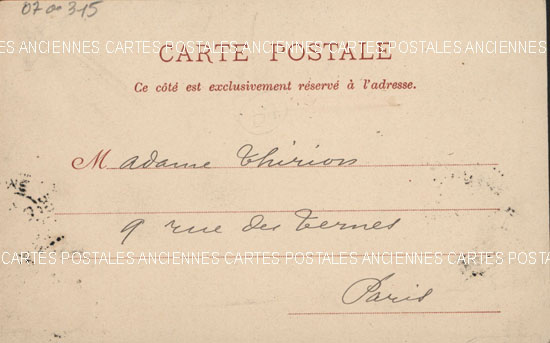 07 00 315
ES ANCIENNES CARTES POSTALES ANCIENNES CARTES POSTALES ANCIENNES
CARTE POSTALE
Ce côté est exclusivement réservé à l'adresse.
Madame Thirion
9 rue des Ternes
CARTES POSTALES ANCIENNES CARTES POSTALES ANCIENNES CARTES POSTALES
Paris